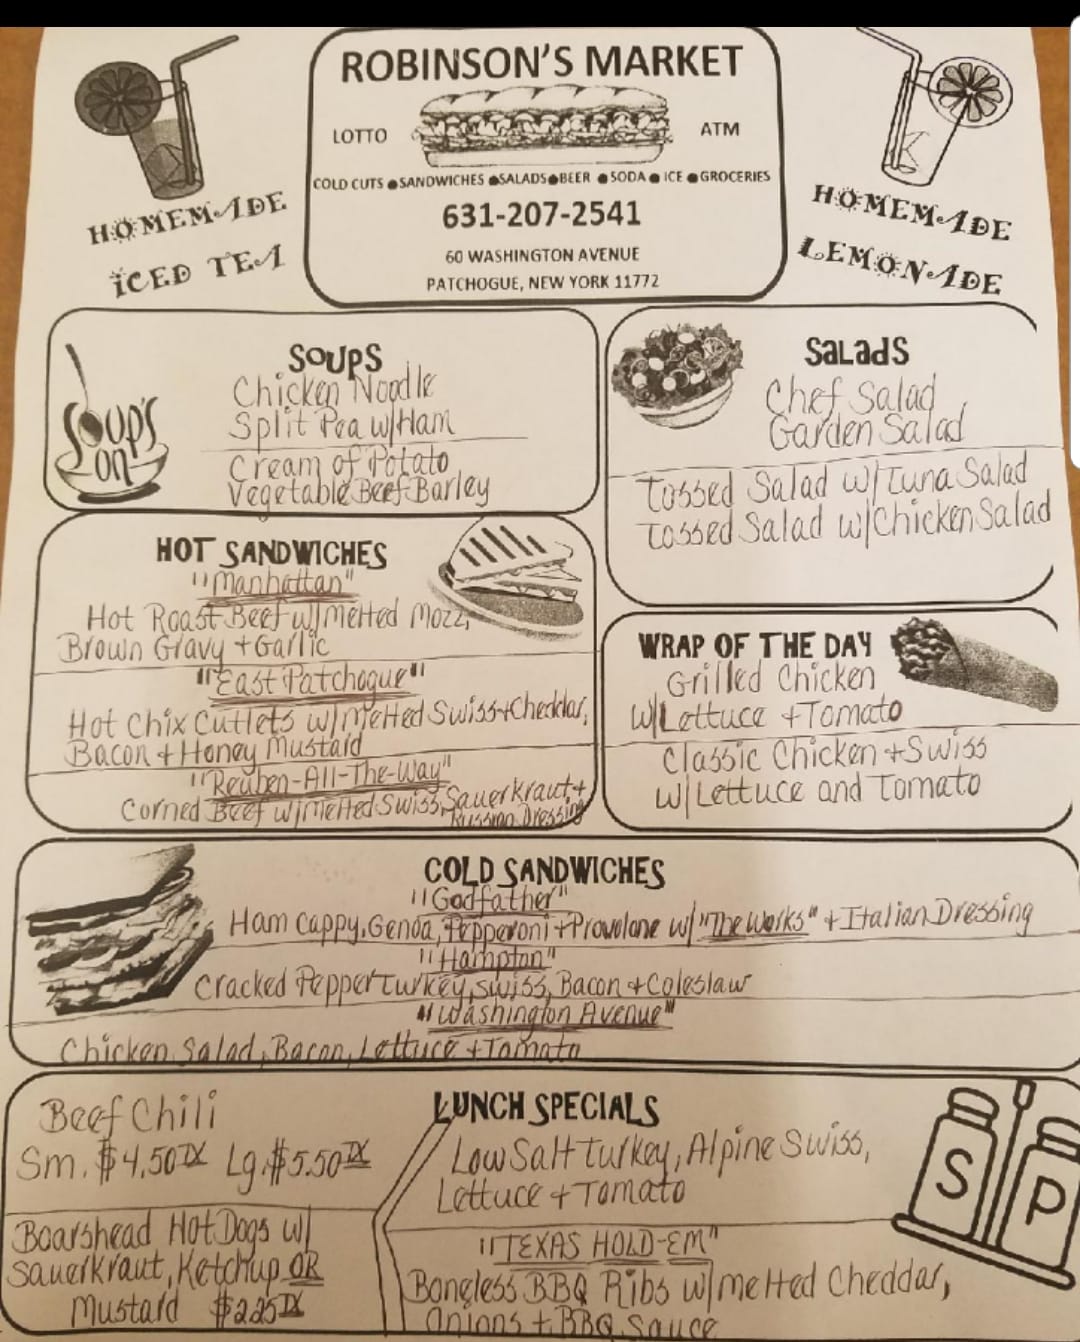 ROBINSON'S MARKET
LOTTO
ATM
COLD CUTS ● SANDWICHES ● SALADS ● BEER ● SODA ● ICE ● GROCERIES
631-207-2541
60 WASHINGTON AVENUE
PATCHOGUE, NEW YORK 11772
HOMEMADE
ICED TEA
HOMEMADE
LEMONADE
SOUP'S
ON
SOUPS
Chicken Noodle
Split Pea w/Ham
Cream of Potato
Vegetable Beef Barley
SALADS
Chef Salad
Garden Salad
Tossed Salad w/Tuna Salad
Tossed Salad w/Chicken Salad
HOT SANDWICHES
"Manhattan"
Hot Roast Beef w/Melted Mozz,
Brown Gravy + Garlic
"East Patchogue"
Hot Chix Cutlets w/Melted Swiss + Cheddar,
Bacon + Honey Mustard
"Reuben-All-The-Way"
Corned Beef w/Melted Swiss, Sauerkraut +
Russian Dressing
WRAP OF THE DAY
Grilled Chicken
w/Lettuce + Tomato
Classic Chicken + Swiss
w/Lettuce and Tomato
COLD SANDWICHES
"Godfather"
Ham Cappy, Genoa, Pepperoni + Provolone w/"The Works" + Italian Dressing
"Hampton"
Cracked Pepper Turkey, Swiss, Bacon + Coleslaw
"Washington Avenue"
Chicken Salad, Bacon, Lettuce + Tomato
Beef Chili
Sm. $4.50TX Lg. $5.50TX
Boarshead Hot Dogs w/
Sauerkraut, Ketchup OR
Mustard $2.25TX
LUNCH SPECIALS
Low Salt Turkey, Alpine Swiss,
Lettuce + Tomato
"TEXAS HOLD-EM"
Boneless BBQ Ribs w/melted Cheddar,
Onions + BBQ Sauce
S
P